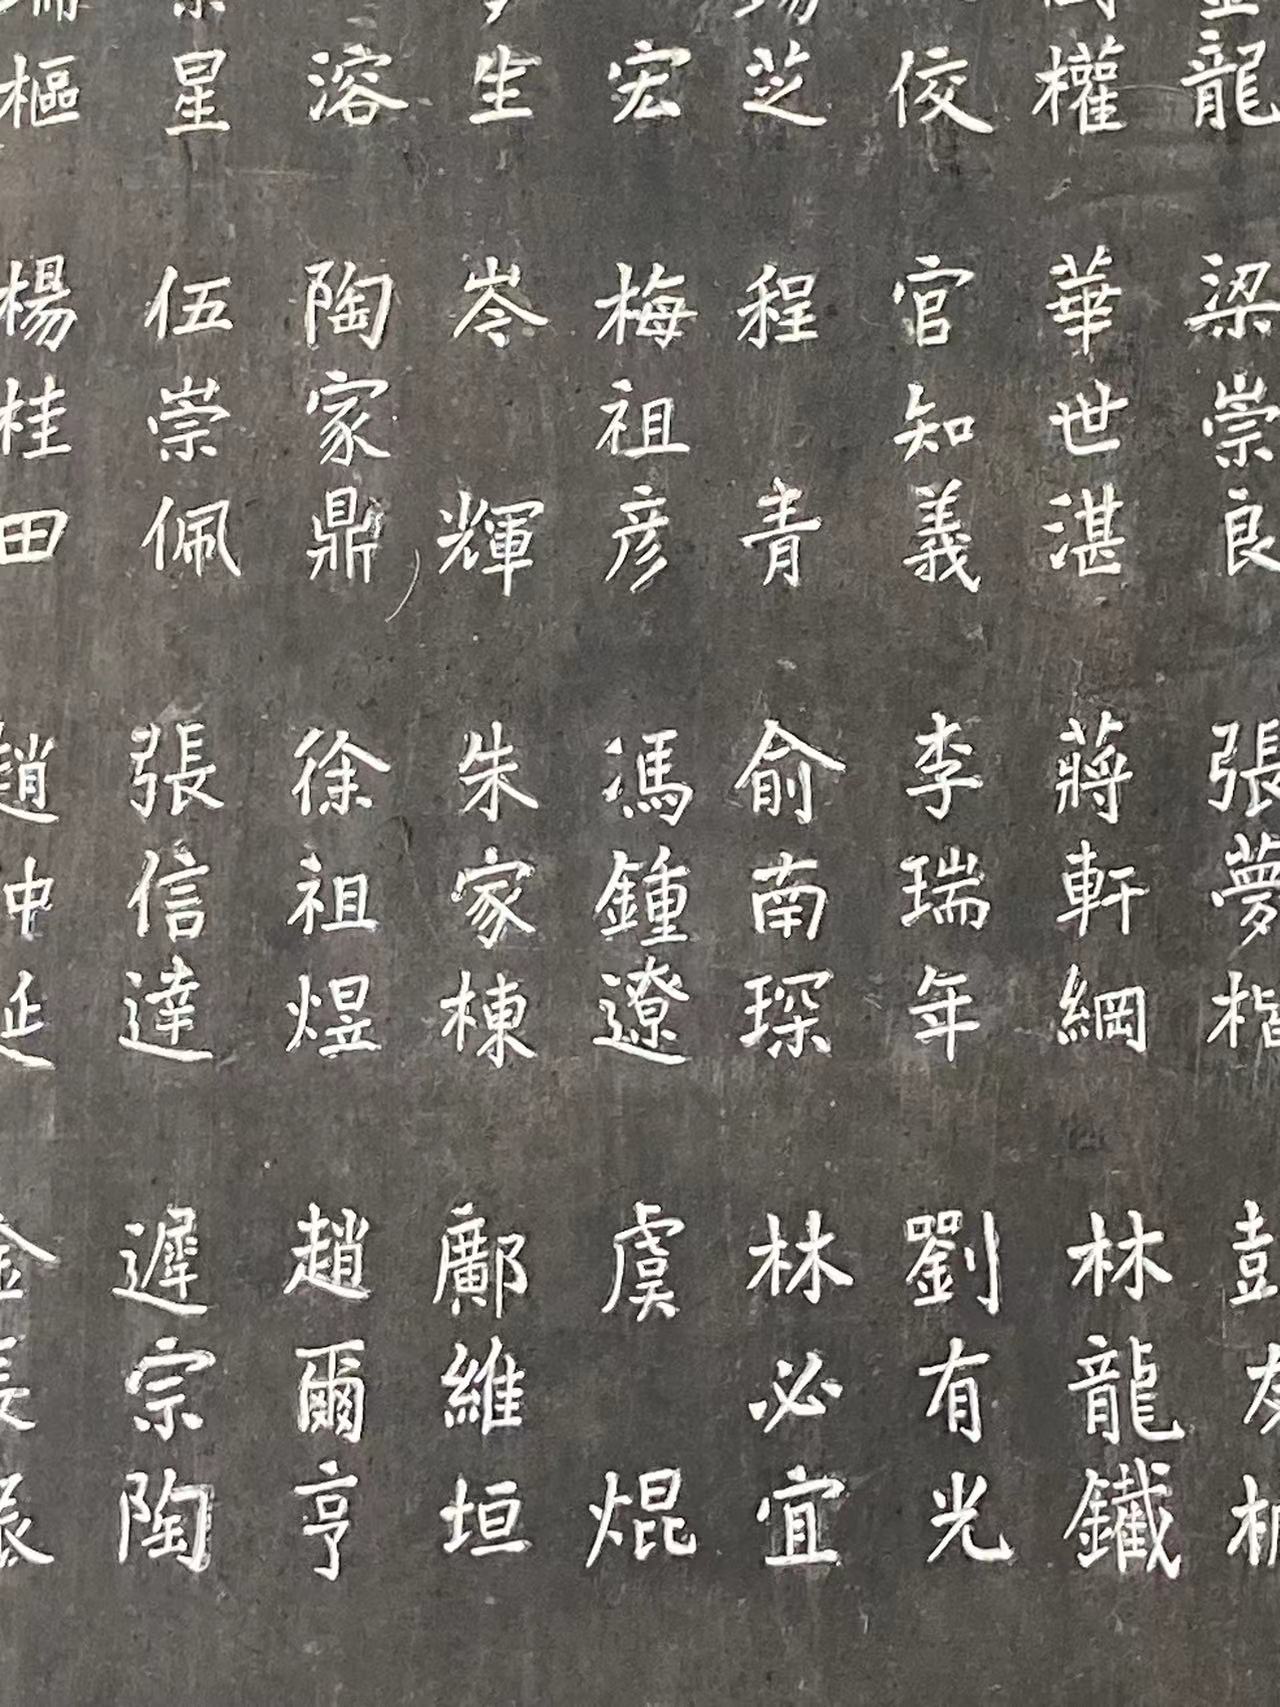 龍 梁崇良 張夢楷 彭
權 華世湛 蔣軒綱 林龍鐵
佼 官知義 李瑞年 劉有光
芝 程青 俞南琛 林必宜
宏 梅祖彦 馮鍾遼 虞焜
生 岑輝 朱家棟 鄺維垣
溶 陶家鼎 徐祖煜 趙爾亨
星 伍崇佩 張信達 遲宗陶
樞 楊桂田 趙 延 金